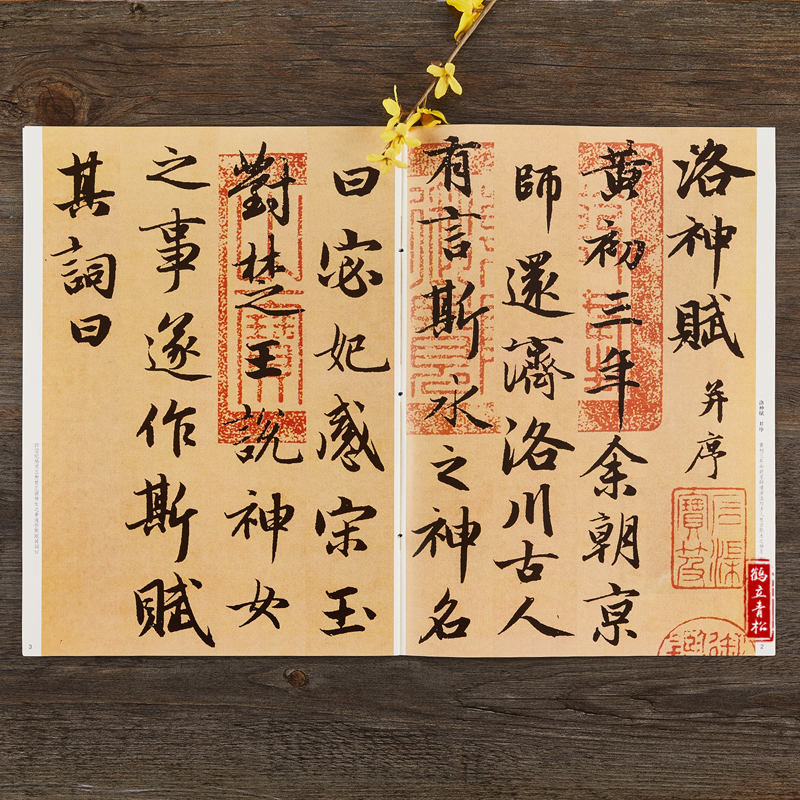 洛神賦 并序
黄初三年余朝京
師還濟洛川古人
有言斯水之神名
曰宓妃感宋玉
對楚王說神女
之事遂作斯賦
其詞曰
石渠寶笈
鹤立青松
2
3